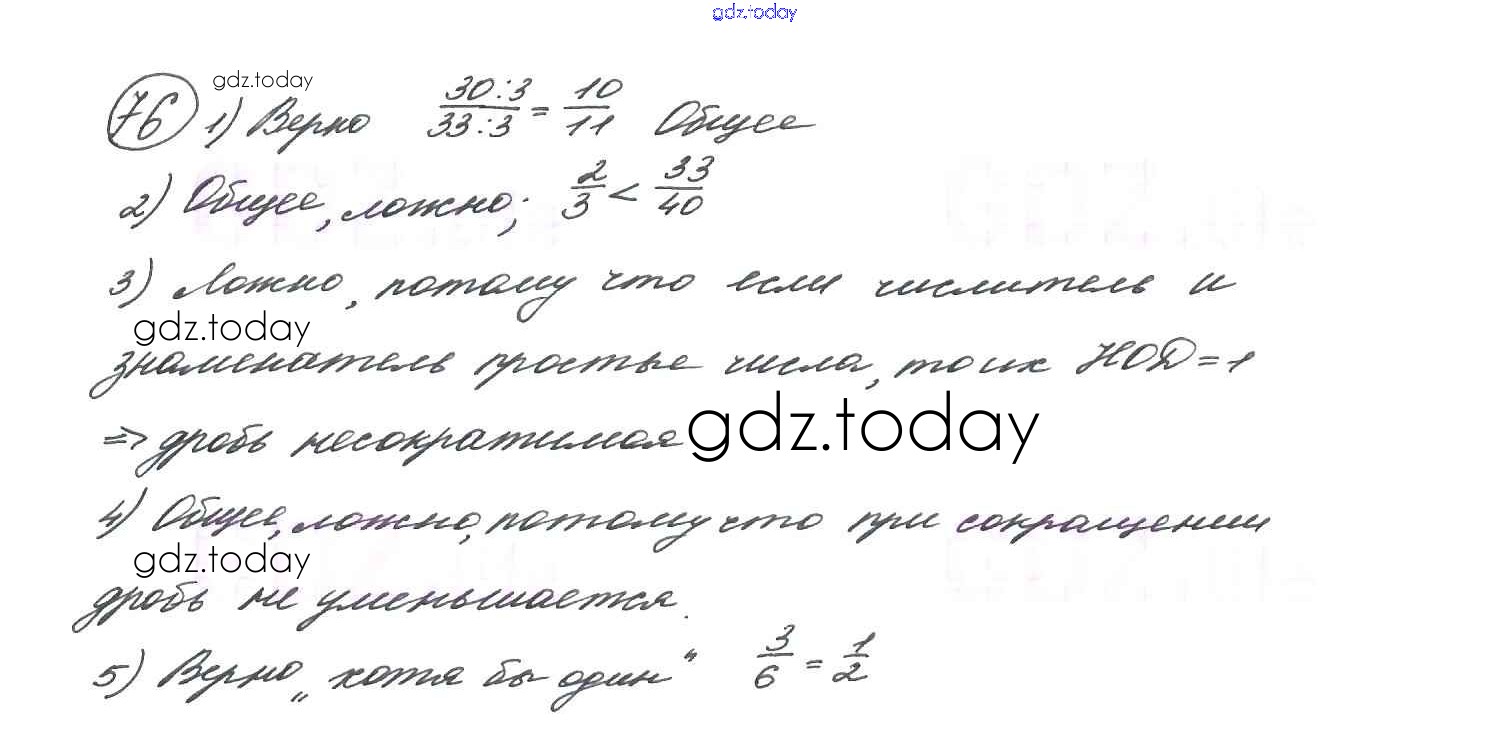 gdz.today
76 gdz.today
1) Верно 30:3/33:3 = 10/11 Общее
2) Общее, ложно; 2/3 < 33/40
3) Ложно, потому что если числитель и
gdz.today
знаменатель простые числа, то их НОД = 1
=> дробь несократимая gdz.today
4) Общее, ложно, потому что при сокращении
gdz.today
дробь не уменьшается.
5) Верно „хотя бы один“ 3/6 = 1/2